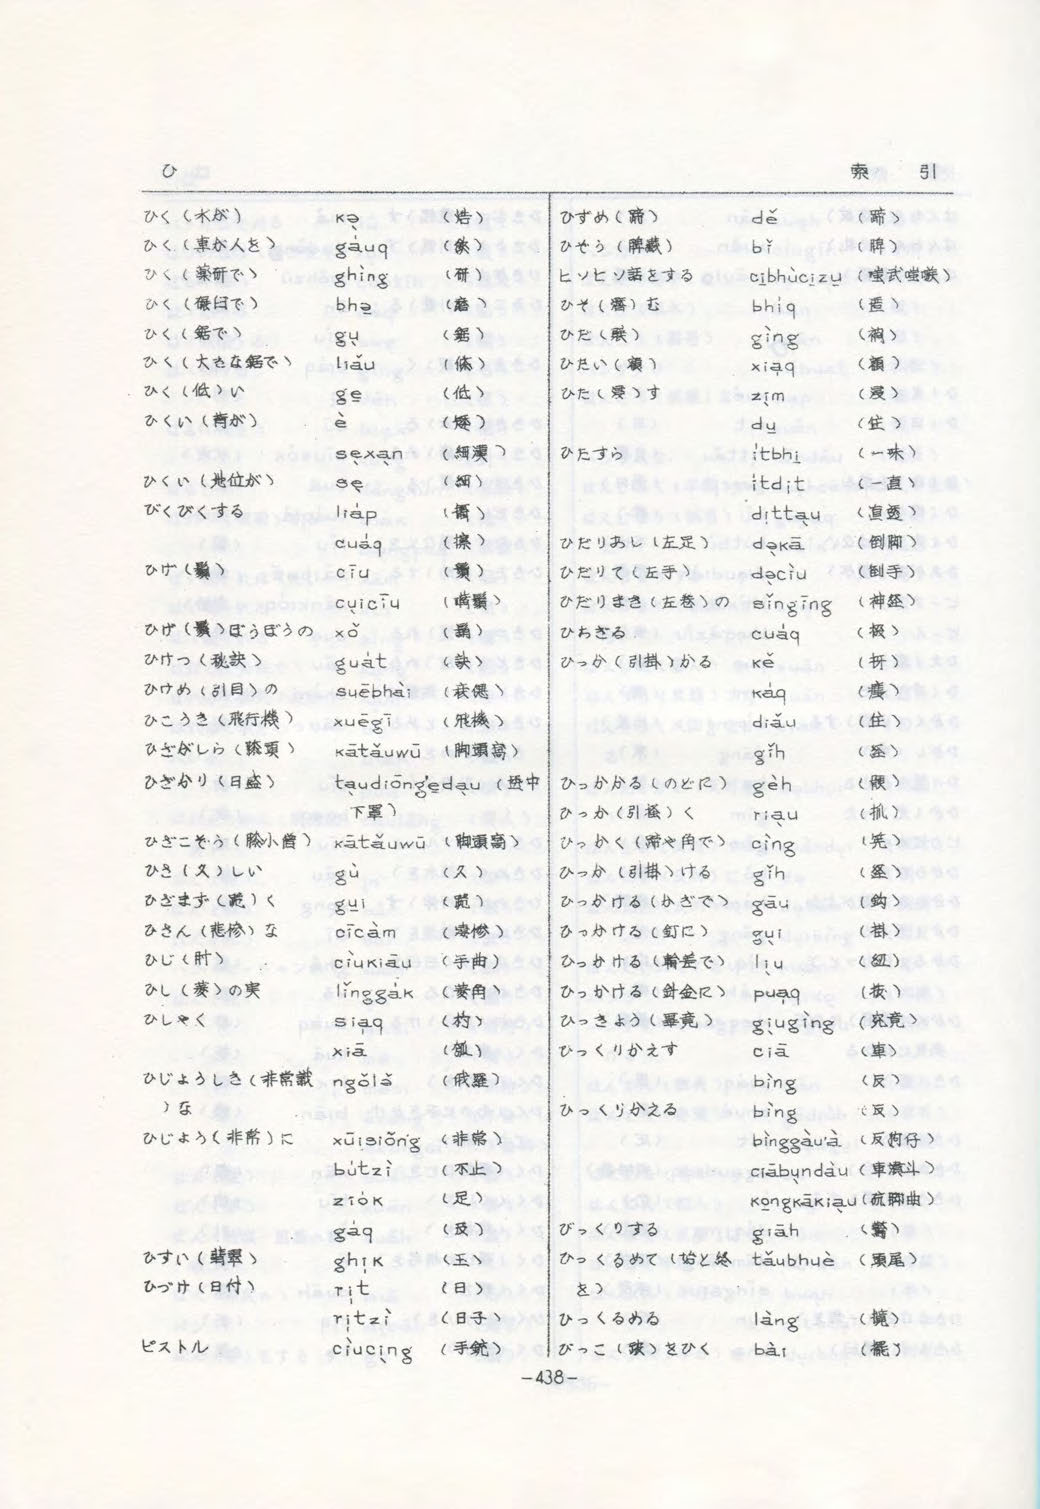 ひ 索 引
ひく（水が） kə̣ （焅）
ひく（車が人を） gáuq
ひく（薬研で） ghìng （研）
ひく（碾臼で） bhə̱ （磨）
ひく（鋸で） gṳ （鋸）
ひく（大きな鋸で） liǎu
ひく（低）い ge̱ （低）
ひくい（背が） è （矮）
sẹxạn （細漢）
ひくい（地位が） sẹ （細）
びくびくする liáp
cuáq
ひげ（鬚） cīu （鬚）
cụicīu （嘴鬚）
ひげ（鬚）ぼうぼうの xǒ （鬍）
ひけつ（秘訣） guát （訣）
ひけめ（引目）の suēbhài （衰僫）
ひこうき（飛行機） xuēgī （飛機）
ひざがしら（膝頭） kātǎuwū （脚頭窩）
ひざかり（日盛） tạudiōng'e̱dạu （透中
下罩）
ひざこぞう（膝小僧） kātǎuwū （脚頭窩）
ひさ（久）しい gù （久）
ひざまず（跪）く gṵi （跪）
ひさん（悲惨）な cīcàm （凄惨）
ひじ（肘） cìukiāu （手曲）
ひし（菱）の実 lǐnggák （菱角）
ひしゃく siạq （杓）
xiā
ひじょうしき（非常識 ngǒlǎ （俄羅）
）な
ひじょう（非常）に xūisiǒng （非常）
bútzì （不止）
ziók （足）
gáq
ひすい（翡翠） ghịk （玉）
ひづけ（日付） rịt （日）
rịtzì （日子）
ピストル cìucịng （手銃）
ひずめ（蹄） dě （蹄）
ひぞう（脾臓） bǐ （脾）
ヒソヒソ話をする ci̱bhùci̱zṵ
ひそ（潜）む bhíq
ひだ（襞） gìng （襇）
ひたい（額） xiạq （額）
ひた（浸）す zịm （浸）
dṵ
ひたすら ítbhi̱ （一味）
ítdịt （一直）
dịttạu （直透）
ひだりあし（左足） dạkā （倒脚）
ひだりて（左手） dạcìu （倒手）
ひだりまき（左巻）の sǐngīng （神経）
ひちぎる cuáq
ひっか（引掛）かる kě
káq
diǎu （住）
gǐh
ひっかかる（のどに） gèh
ひっか（引掻）く riạu （抓）
ひっかく（蹄や角で） cìng
ひっか（引掛）ける gǐh
ひっかける（かぎで） gāu （鈎）
ひっかける（釘に） gụi （掛）
ひっかける（輪差で） lịu （紐）
ひっかける（針金に） puạq
ひっきょう（畢竟） gịugìng （究竟）
ひっくりかえす ciā （車）
bìng （反）
ひっくりかえる bìng （反）
bìnggàu'à （反狗仔）
ciābụndàu
ko̱ngkākiạu
びっくりする giāh （驚）
ひっくるめて（始と終 tǎubhuè （頭尾）
を）
ひっくるめる làng
びっこ（跛）をひく bài
－438－